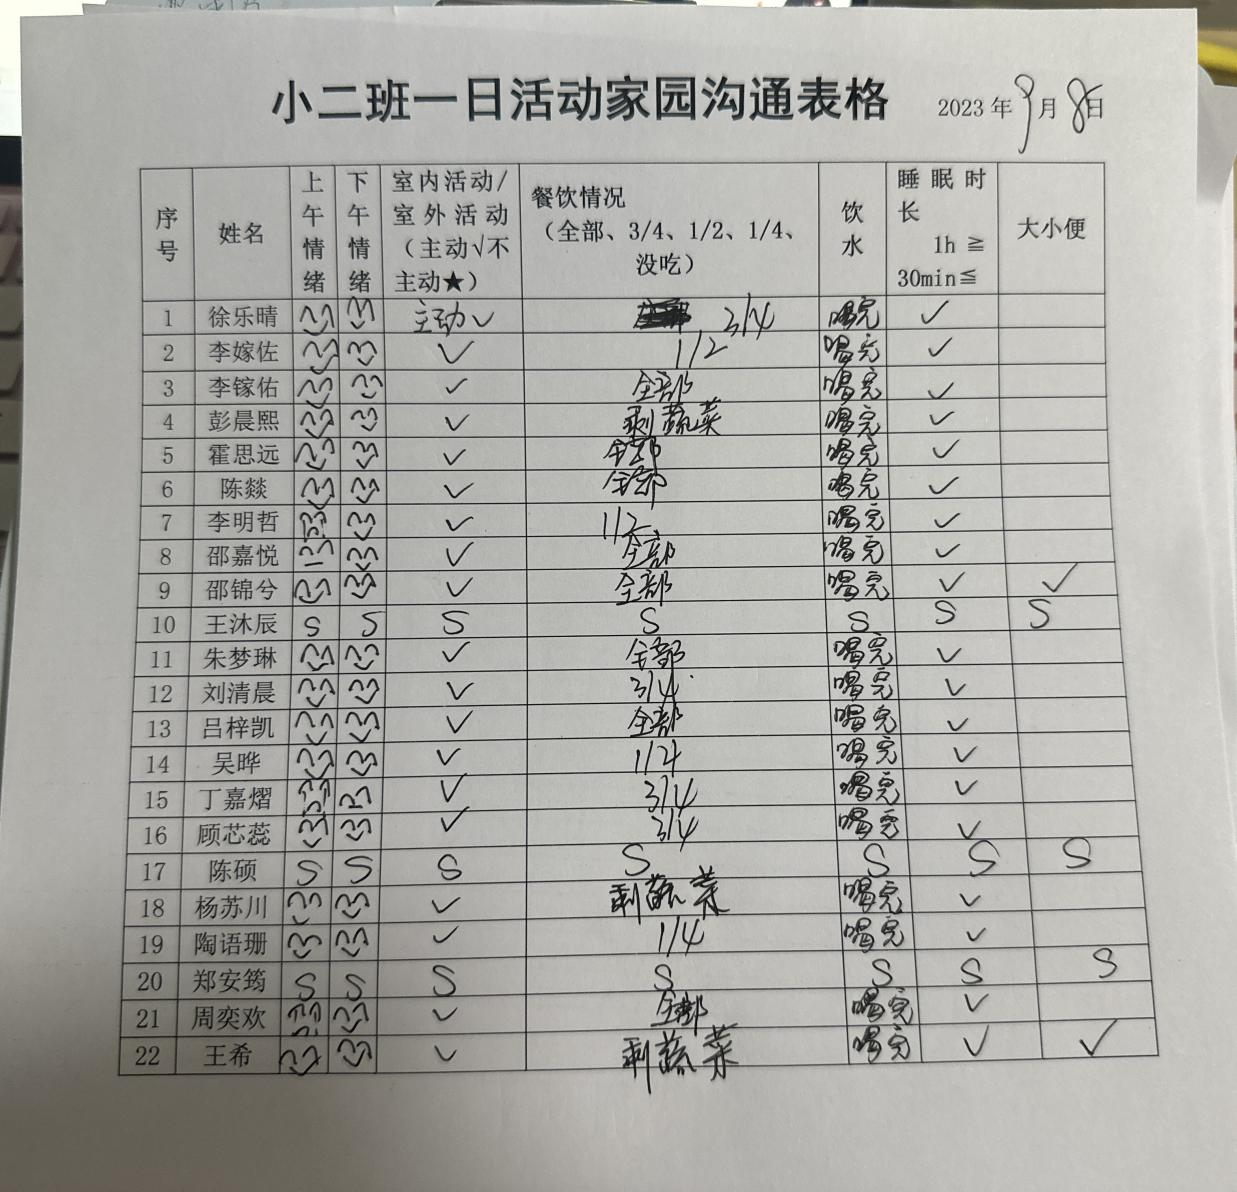 小二班一日活动家园沟通表格 2023年9月8日
序号 姓名 上午情绪 下午情绪 室内活动/室外活动（主动√不主动★） 餐饮情况（全部、3/4、1/2、1/4、没吃） 饮水 睡眠时长 1h ≧ 30min≦ 大小便
1 徐乐晴 主动√ 3/4 喝完 √
2 李嫁佐 √ 1/2 喝完 √
3 李镓佑 √ 全部 喝完 √
4 彭晨熙 √ 剩蔬菜 喝完 √
5 霍思远 √ 全部 喝完 √
6 陈燚 √ 全部 喝完 √
7 李明哲 √ 1/2 喝完 √
8 邵嘉悦 √ 全部 喝完 √
9 邵锦兮 √ 全部 喝完 √ √
10 王沐辰 S S S S S S S
11 朱梦琳 √ 全部 喝完 √
12 刘清晨 √ 3/4 喝完 √
13 吕梓凯 √ 全部 喝完 √
14 吴晔 √ 1/2 喝完 √
15 丁嘉熠 √ 3/4 喝完 √
16 顾芯蕊 √ 3/4 喝完 √
17 陈硕 S S S S S S S
18 杨苏川 √ 剩蔬菜 喝完 √
19 陶语珊 √ 1/4 喝完 √
20 郑安筠 S S S S S S S
21 周奕欢 √ 全部 喝完 √
22 王希 √ 剩蔬菜 喝完 √ √